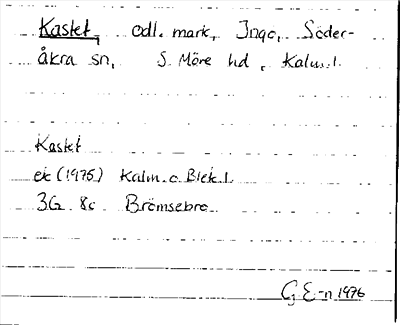 Kastet, odl. mark, Inge, Söder-
åkra sn, S. Möre hd, Kalm. l.
Kastet
ek (1975) Kalm. o Blek. l.
3G 8c Brömsebro
G E-n 1976